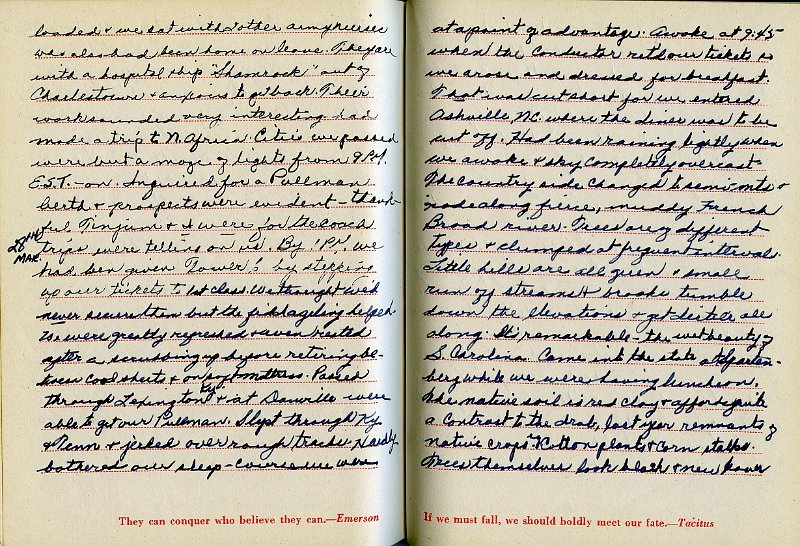 loaded & we sat with 2 other army nurses
was also had been home on leave. They are
with a hospital ship "Shamrock" out of
Charlestown & anxious to get back. Their
work sounded very interesting had
made a trip to N. Africa. Cities we passed
were but a maze of lights from 9 P.M.
E.S.T. on. Inquired for a Pullman
berth & prospects were evident - thank-
ful Jinjum & I were for the coach
28th Mar.
trips were telling on us. By 1 P.M. we
had been given "Lower 1" by stepping
up our tickets to 1st class. We thought we'd
never secure them but the fish ageling helped.
We were greatly refreshed & even rested
after a scrubbing up before retiring be-
tween cool sheets & on soft mattress. Passed
through Lexington Ky. & at Danville were
able to get our Pullman. Slept through Ky
& Tenn & jerked over rough tracks. Hardly
bothered our sleep - course we were
They can conquer who believe they can.—Emerson
at a point of advantage. Awoke at 9:45
when the Conductor retd our tickets so
we arose and dressed for breakfast.
That was cut short for we entered
Ashville, N.C. where the diner was to be
cut off. Had been raining lightly when
we awoke & sky completely overcast.
The country side changed to semi-mts &
rode along fierce, muddy French
Broad river. Trees are of different
types & clumped at frequent intervals.
Little hills are all green & small
run off streams & brooks tumble
down the elevations & get silt all
along. It's remarkable - the wet beauty of
S. Carolina. Came into the state at Sparten-
berg while we were having luncheon.
The native soil is red clay & affords quite
a contrast to the drab, last year remnants of
native crops - Kotton plants & corn stalks.
Trees themselves look black & new
If we must fall, we should boldly meet our fate.—Tacitus